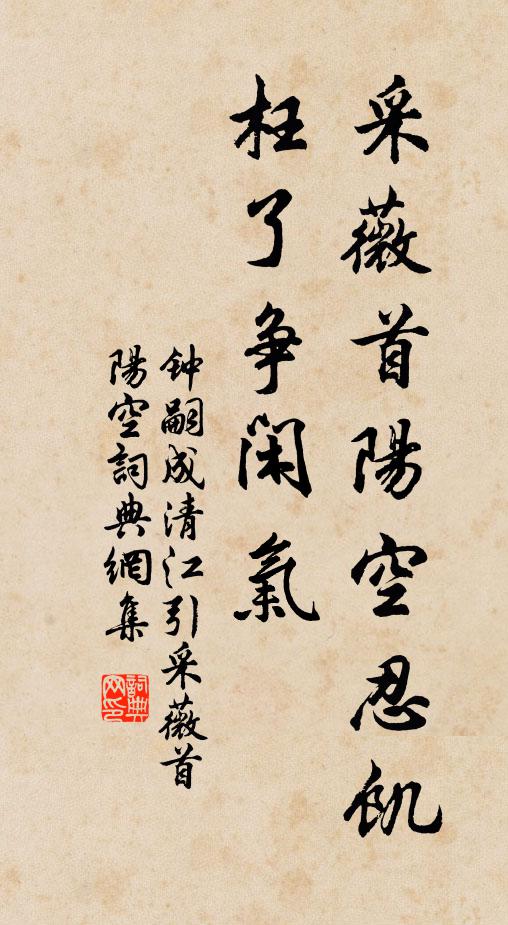 采薇首陽空忍飢
枉了争閑氣
钟嗣成清江引采薇首
陽空詞典網集
詞典
网印